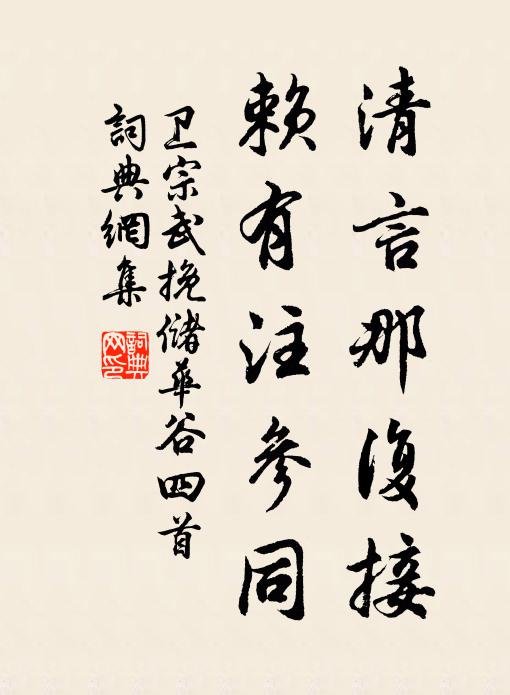 清言那復接
賴有注參同
卫宗武挽儲華谷四首
詞典網集
詞典網印